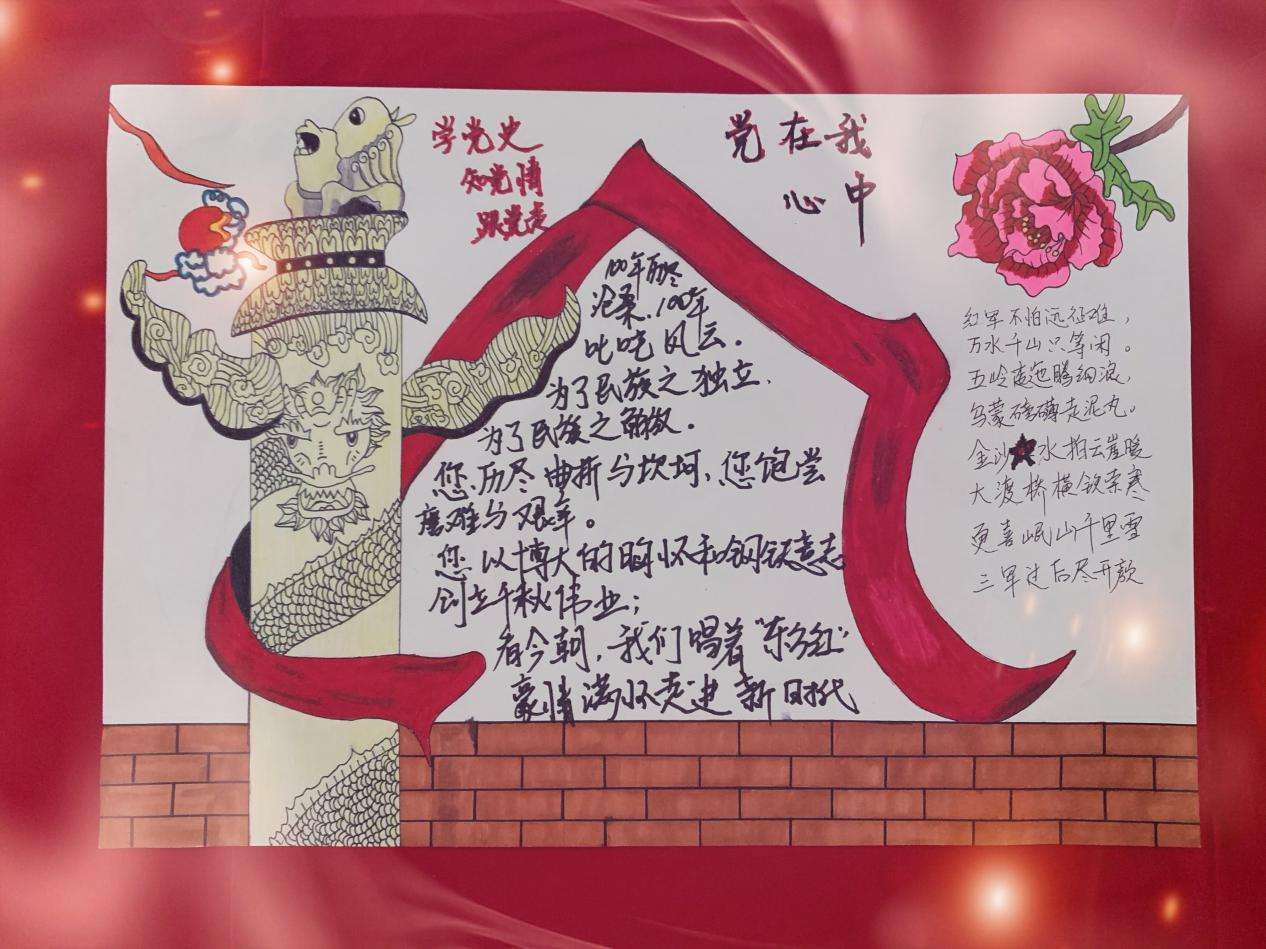 学党史
知党情
跟党走
党在我
心中
100年历尽
沧桑，100年
叱咤风云。
为了民族之独立，
为了民族之解放。
您历尽曲折与坎坷，您饱尝
磨难与艰辛。
您以博大的胸怀和钢铁意志
创立千秋伟业；
看今朝，我们唱着“东方红”
豪情满怀走进新时代
红军不怕远征难，
万水千山只等闲。
五岭逶迤腾细浪，
乌蒙磅礴走泥丸。
金沙水拍云崖暖
大渡桥横铁索寒
更喜岷山千里雪
三军过后尽开颜